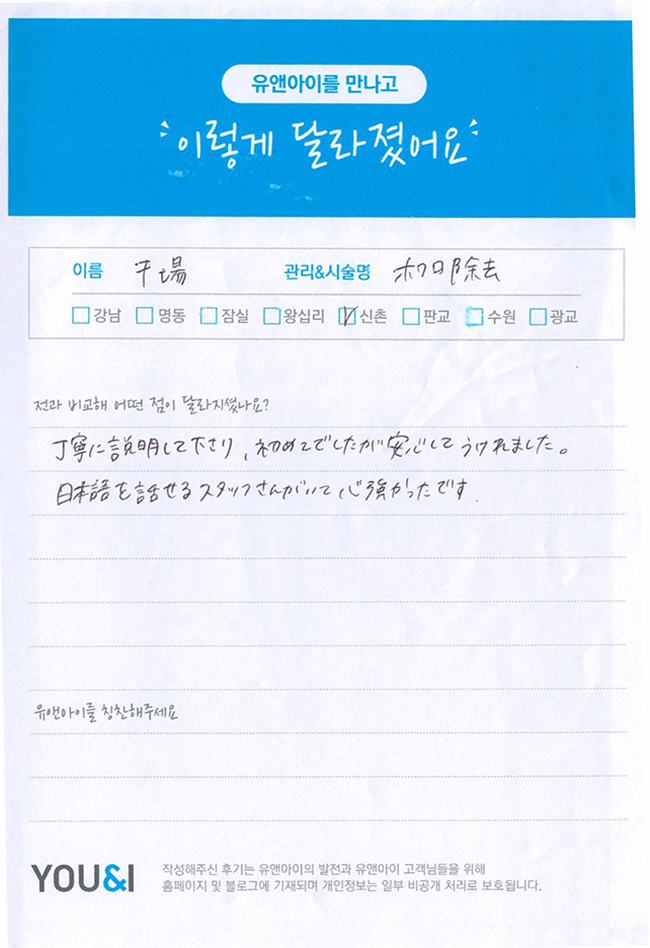 유앤아이를 만나고
이렇게 달라졌어요
이름 干場 관리&시술명 ホクロ除去
강남 명동 잠실 왕십리 신촌 판교 수원 광교
전과 비교해 어떤 점이 달라지셨나요?
丁寧に説明して下さり、初めてでしたが安心してうけれました。
日本語を話せるスタッフさんがいて心強かったです.
유앤아이를 칭찬해주세요
YOU&I
작성해주신 후기는 유앤아이의 발전과 유앤아이 고객님들을 위해
홈페이지 및 블로그에 기재되며 개인정보는 일부 비공개 처리로 보호됩니다.